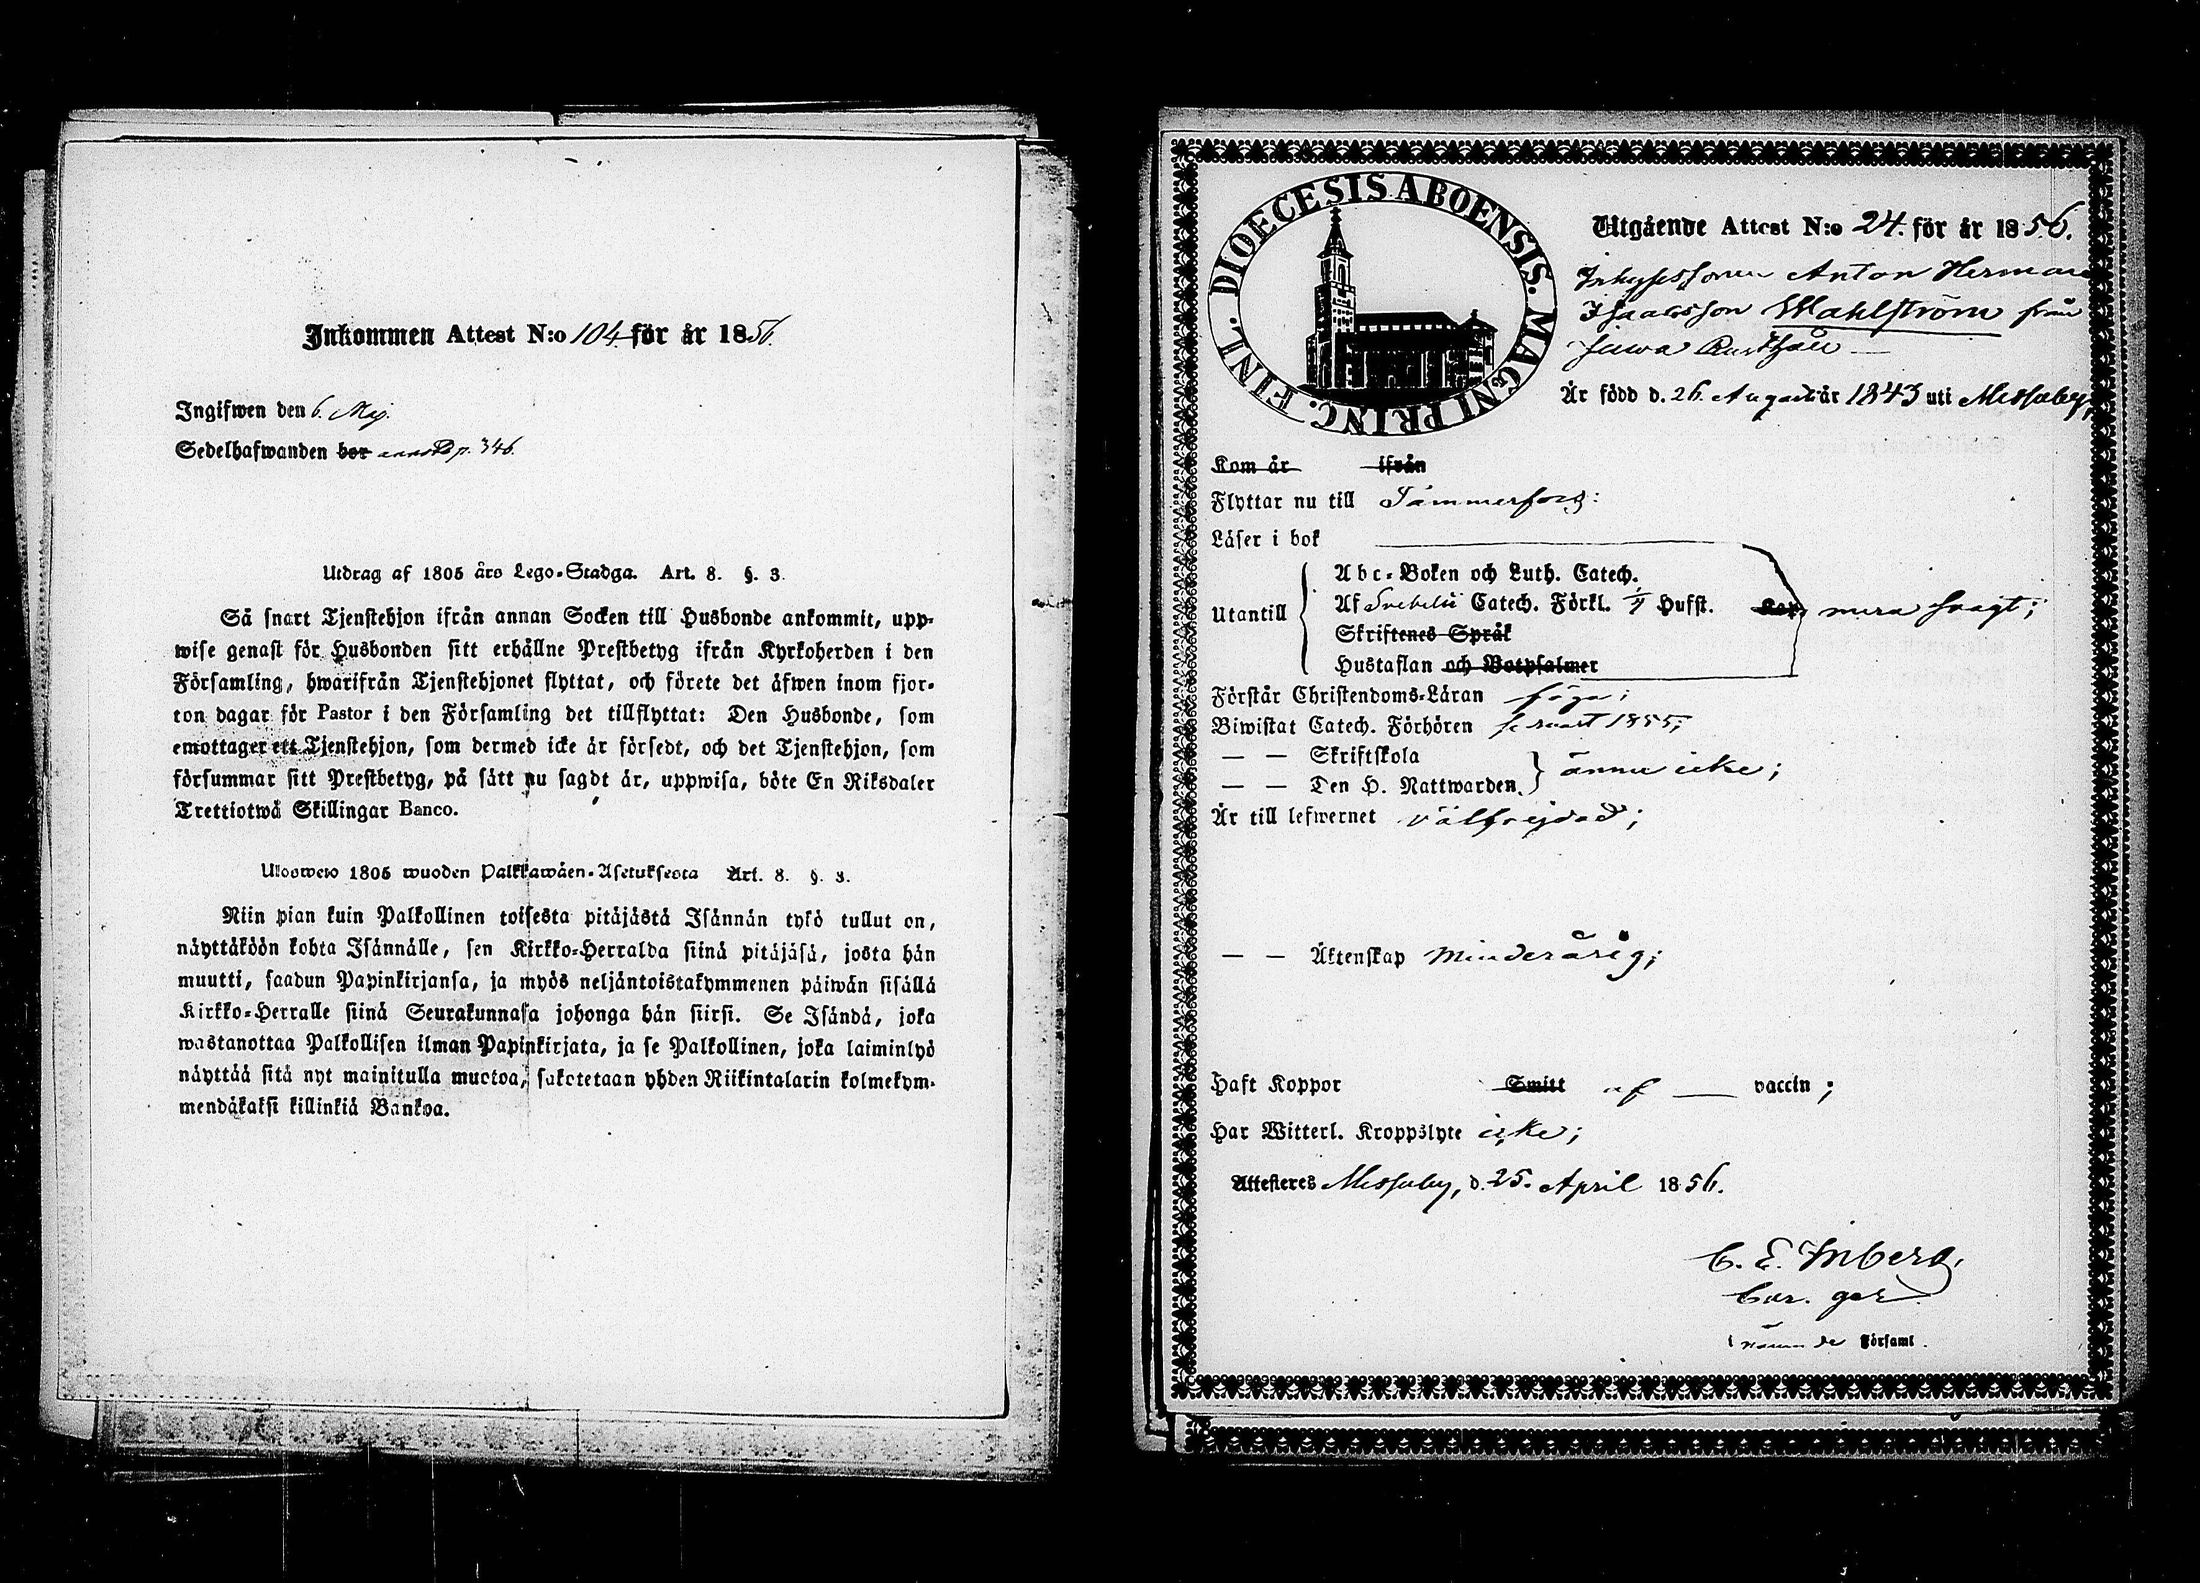 Inkommen Attest N:o 104. för år 1856.
Ingifwen den 6. Maj.
Sedelhafwanden bor annot p. 346.
Utdrag af 1805 års Lego-Stadga. Art. 8. §. 3.
Så snart Tjenstehjon ifrån annan Socken till Husbonde ankommit, upp-
wise genast för Husbonden sitt erhållne Prestbetyg ifrån Kyrkoherden i den
Församling, hwarifrån Tjenstehjonet flyttat, och förete det äfwen inom fjor-
ton dagar för Pastor i den Församling det tillflyttat: Den Husbonde, som
emottager ett Tjenstehjon, som dermed icke är försedt, och det Tjenstehjon, som
försummar sitt Prestbetyg, på sätt nu sagdt är, uppwisa, böte En Riksdaler
Trettiotwå Skillingar Banco.
Ulosweto 1805 wuoden Palkkawäen-Asetuksesta Art. 8. §. 3.
Niin pian kuin Palkollinen toisesta pitäjästä Isännän tykö tullut on,
näyttäköön kohta Isännälle, sen Kirkko-Herralda siinä pitäjäsä, josta hän
muutti, saadun Papinkirjansa, ja myös neljäntoistakymmenen päiwän sisällä
Kirkko-Herralle siinä Seurakunnasa johonga hän siirsi. Se Isändä, joka
wastanottaa Palkollisen ilman Papinkirjata, ja se Palkollinen, joka laiminlyö
näyttää sitä nyt mainitulla muotoa, sakotetaan yhden Riikintalarin kolmekym-
mendäkaksi killinkiä Bankoa.
DIOECESIS ABOENSIS. MAGNI PRINC. FINL.
Utgående Attest N:o 24. för år 1856.
Inhysessonen Anton Herman
Isaacsson Wahlström från
Rusthåll
Är född d. 26. Augusti år 1843 uti Messuby,
Kom år ifrån
Flyttar nu till Tammerfors:
Läser i bok
Abc-Boken och Luth. Catech.
Utantill Af Svebelii Catech. Förkl. Hufst. mera svagt;
Skriftenes Språk
Hustaflan och Botpsalmer
Förstår Christendoms-Läran föga;
Biwistat Catech. Förhören senast 1855;
— — Skriftskola
— — Den H. Nattwarden. ännu icke;
Är till lefwernet välfrejdad;
— — Äktenskap Minderårig;
Haft Koppor Smitt af — vaccin;
Har Witterl. Kroppslyte icke;
Attesteres Messuby, d. 25. April 1856.
C. E. Inberg,
i nämnde Församl.